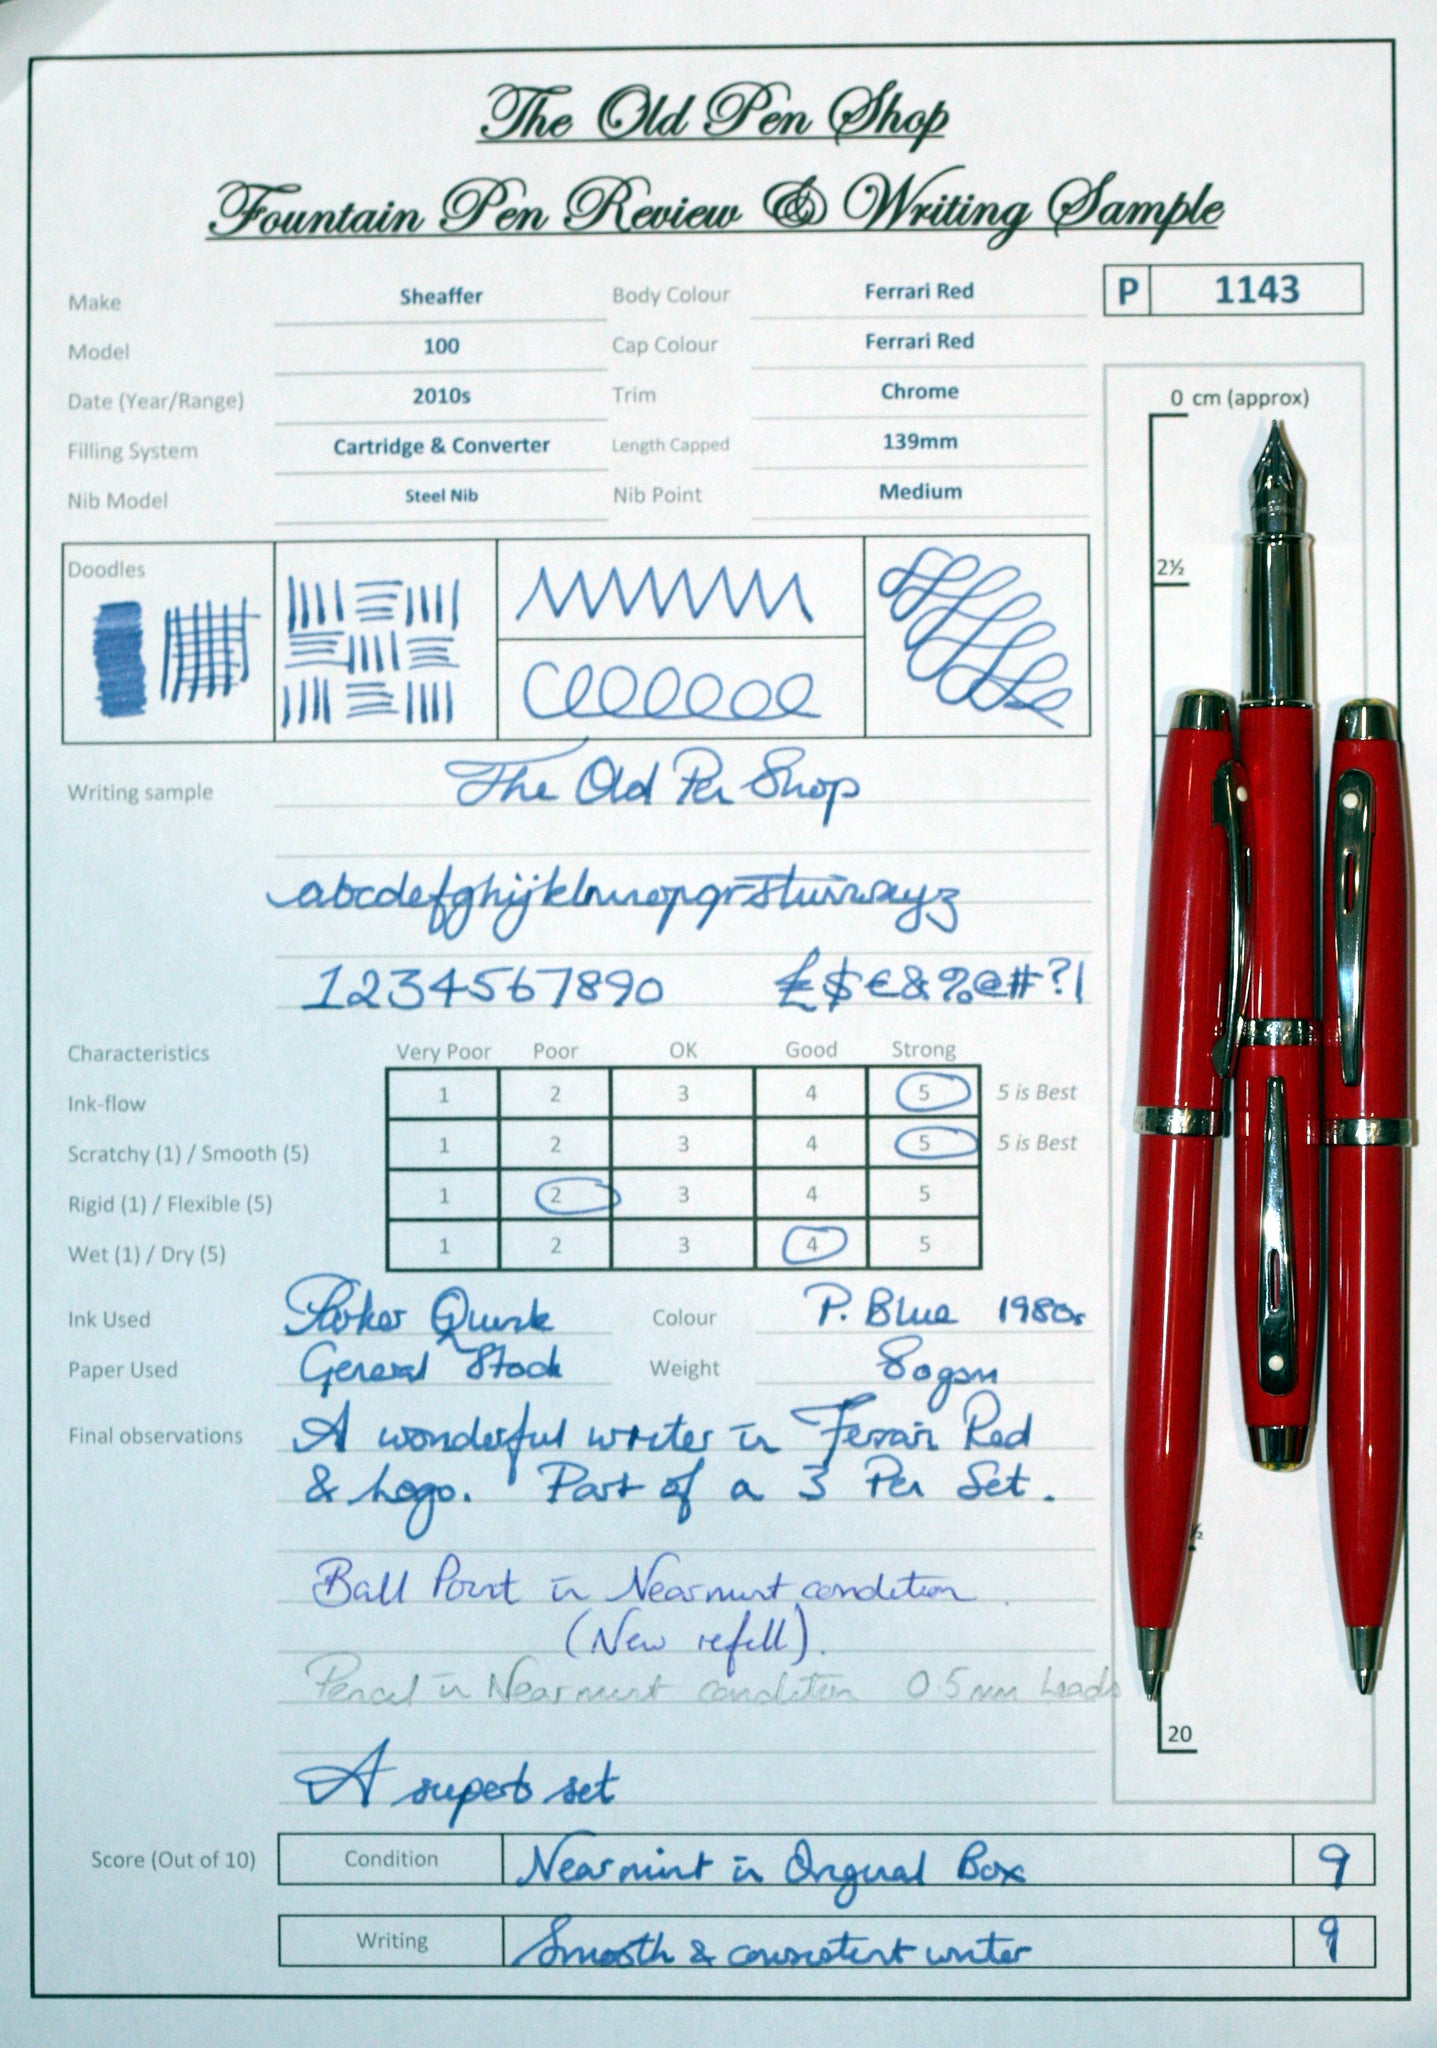 The Old Pen Shop
Fountain Pen Review & Writing Sample
Make Sheaffer Body Colour Ferrari Red P 1143
Model 100 Cap Colour Ferrari Red
Date (Year/Range) 2010s Trim Chrome
0 cm (approx)
Filling System Cartridge & Converter Length Capped 139mm
Nib Model Steel Nib Nib Point Medium
Doodles
2½
Writing sample The Old Pen Shop
abcdefghijklmnopqrstuvwxyz
1234567890 £$€&%@#?!
Characteristics Very Poor Poor OK Good Strong
Ink-flow 1 2 3 4 5 5 is Best
Scratchy (1) / Smooth (5) 1 2 3 4 5 5 is Best
Rigid (1) / Flexible (5) 1 2 3 4 5
Wet (1) / Dry (5) 1 2 3 4 5
Ink Used Parker Quink Colour P. Blue 1980s
Paper Used General Stock Weight 80gsm
Final observations A wonderful writer in Ferrari Red
& Logo. Part of a 3 Pen Set.
½
Ball Point in Near mint condition.
(New refill).
Pencil in Near mint condition 0.5mm Leads
20
A superb set
Score (Out of 10) Condition Near mint in Original Box 9
Writing Smooth & consistent writer 9